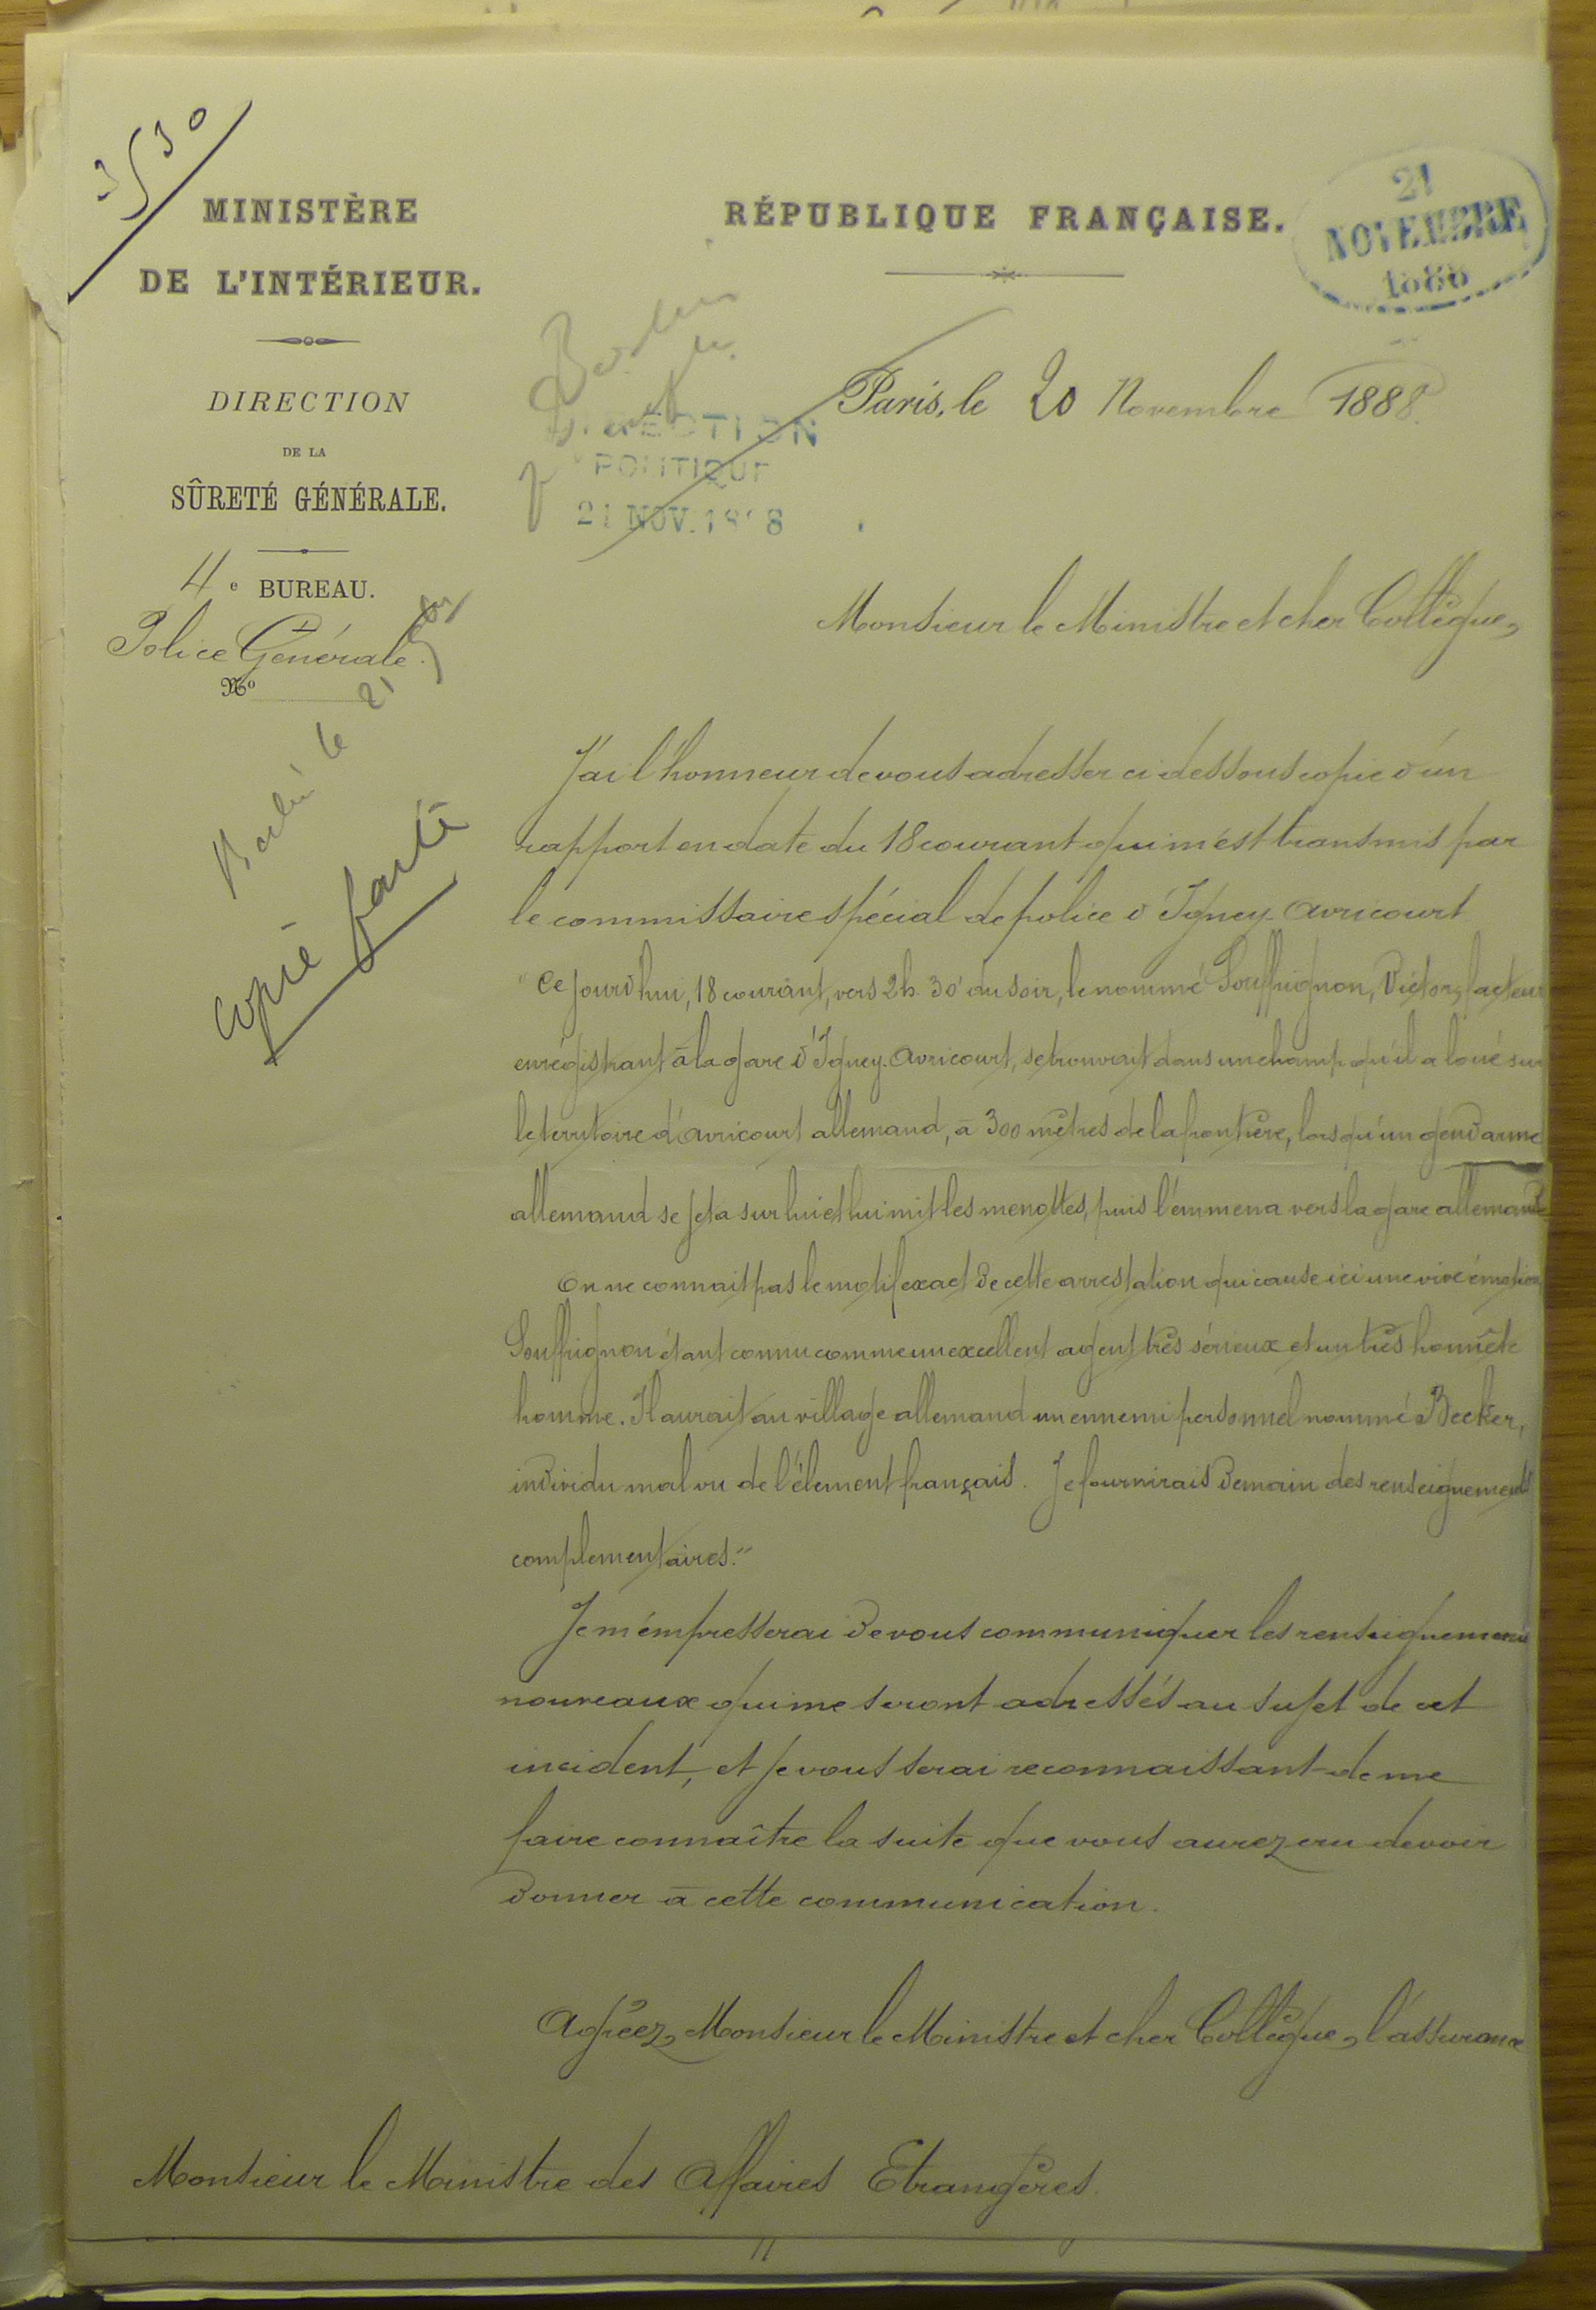 3530
MINISTÈRE
DE L'INTÉRIEUR.
DIRECTION
DE LA
SÛRETÉ GÉNÉRALE.
4e BUREAU.
Police Générale.
No
Berlin le 21
copie faite
RÉPUBLIQUE FRANÇAISE.
21
NOVEMBRE
1888
Berlin
DIRECTION
POLITIQUE
21 NOV. 1888
Paris, le 20 Novembre 1888.
Monsieur le Ministre et cher Collègue,
J'ai l'honneur de vous adresser ci dessous copie d'un
rapport en date du 18 courant qui m'est transmis par
le commissaire spécial de police d'Igney-Avricourt
"Ce jourd'hui, 18 courant, vers 2h. 30' du soir, le nommé Souffrignon, Victor, facteur
enregistrant à la gare d'Igney-Avricourt, se trouvait dans un champ qu'il a loué sur
le territoire d'Avricourt allemand, à 300 mètres de la frontière, lorsqu'un gendarme
allemand se jeta sur lui et lui mit les menottes, puis l'emmena vers la gare allemande
On ne connait pas le motif exact de cette arrestation qui cause ici une vive émotion
Souffrignon étant connu comme un excellent agent très sérieux et un très honnête
homme. Il aurait au village allemand un ennemi personnel nommé Becker,
individu mal vu de l'élement français. Je fournirais demain des renseignements
complementaires."
Je m'empresserai de vous communiquer les renseignements
nouveaux qui me seront adressés au sujet de cet
incident, et je vous serai reconnaissant de me
faire connaître la suite que vous aurez cru devoir
donner à cette communication.
Agréez, Monsieur le Ministre et cher Collègue, l'assurance
Monsieur le Ministre des Affaires Etrangères.